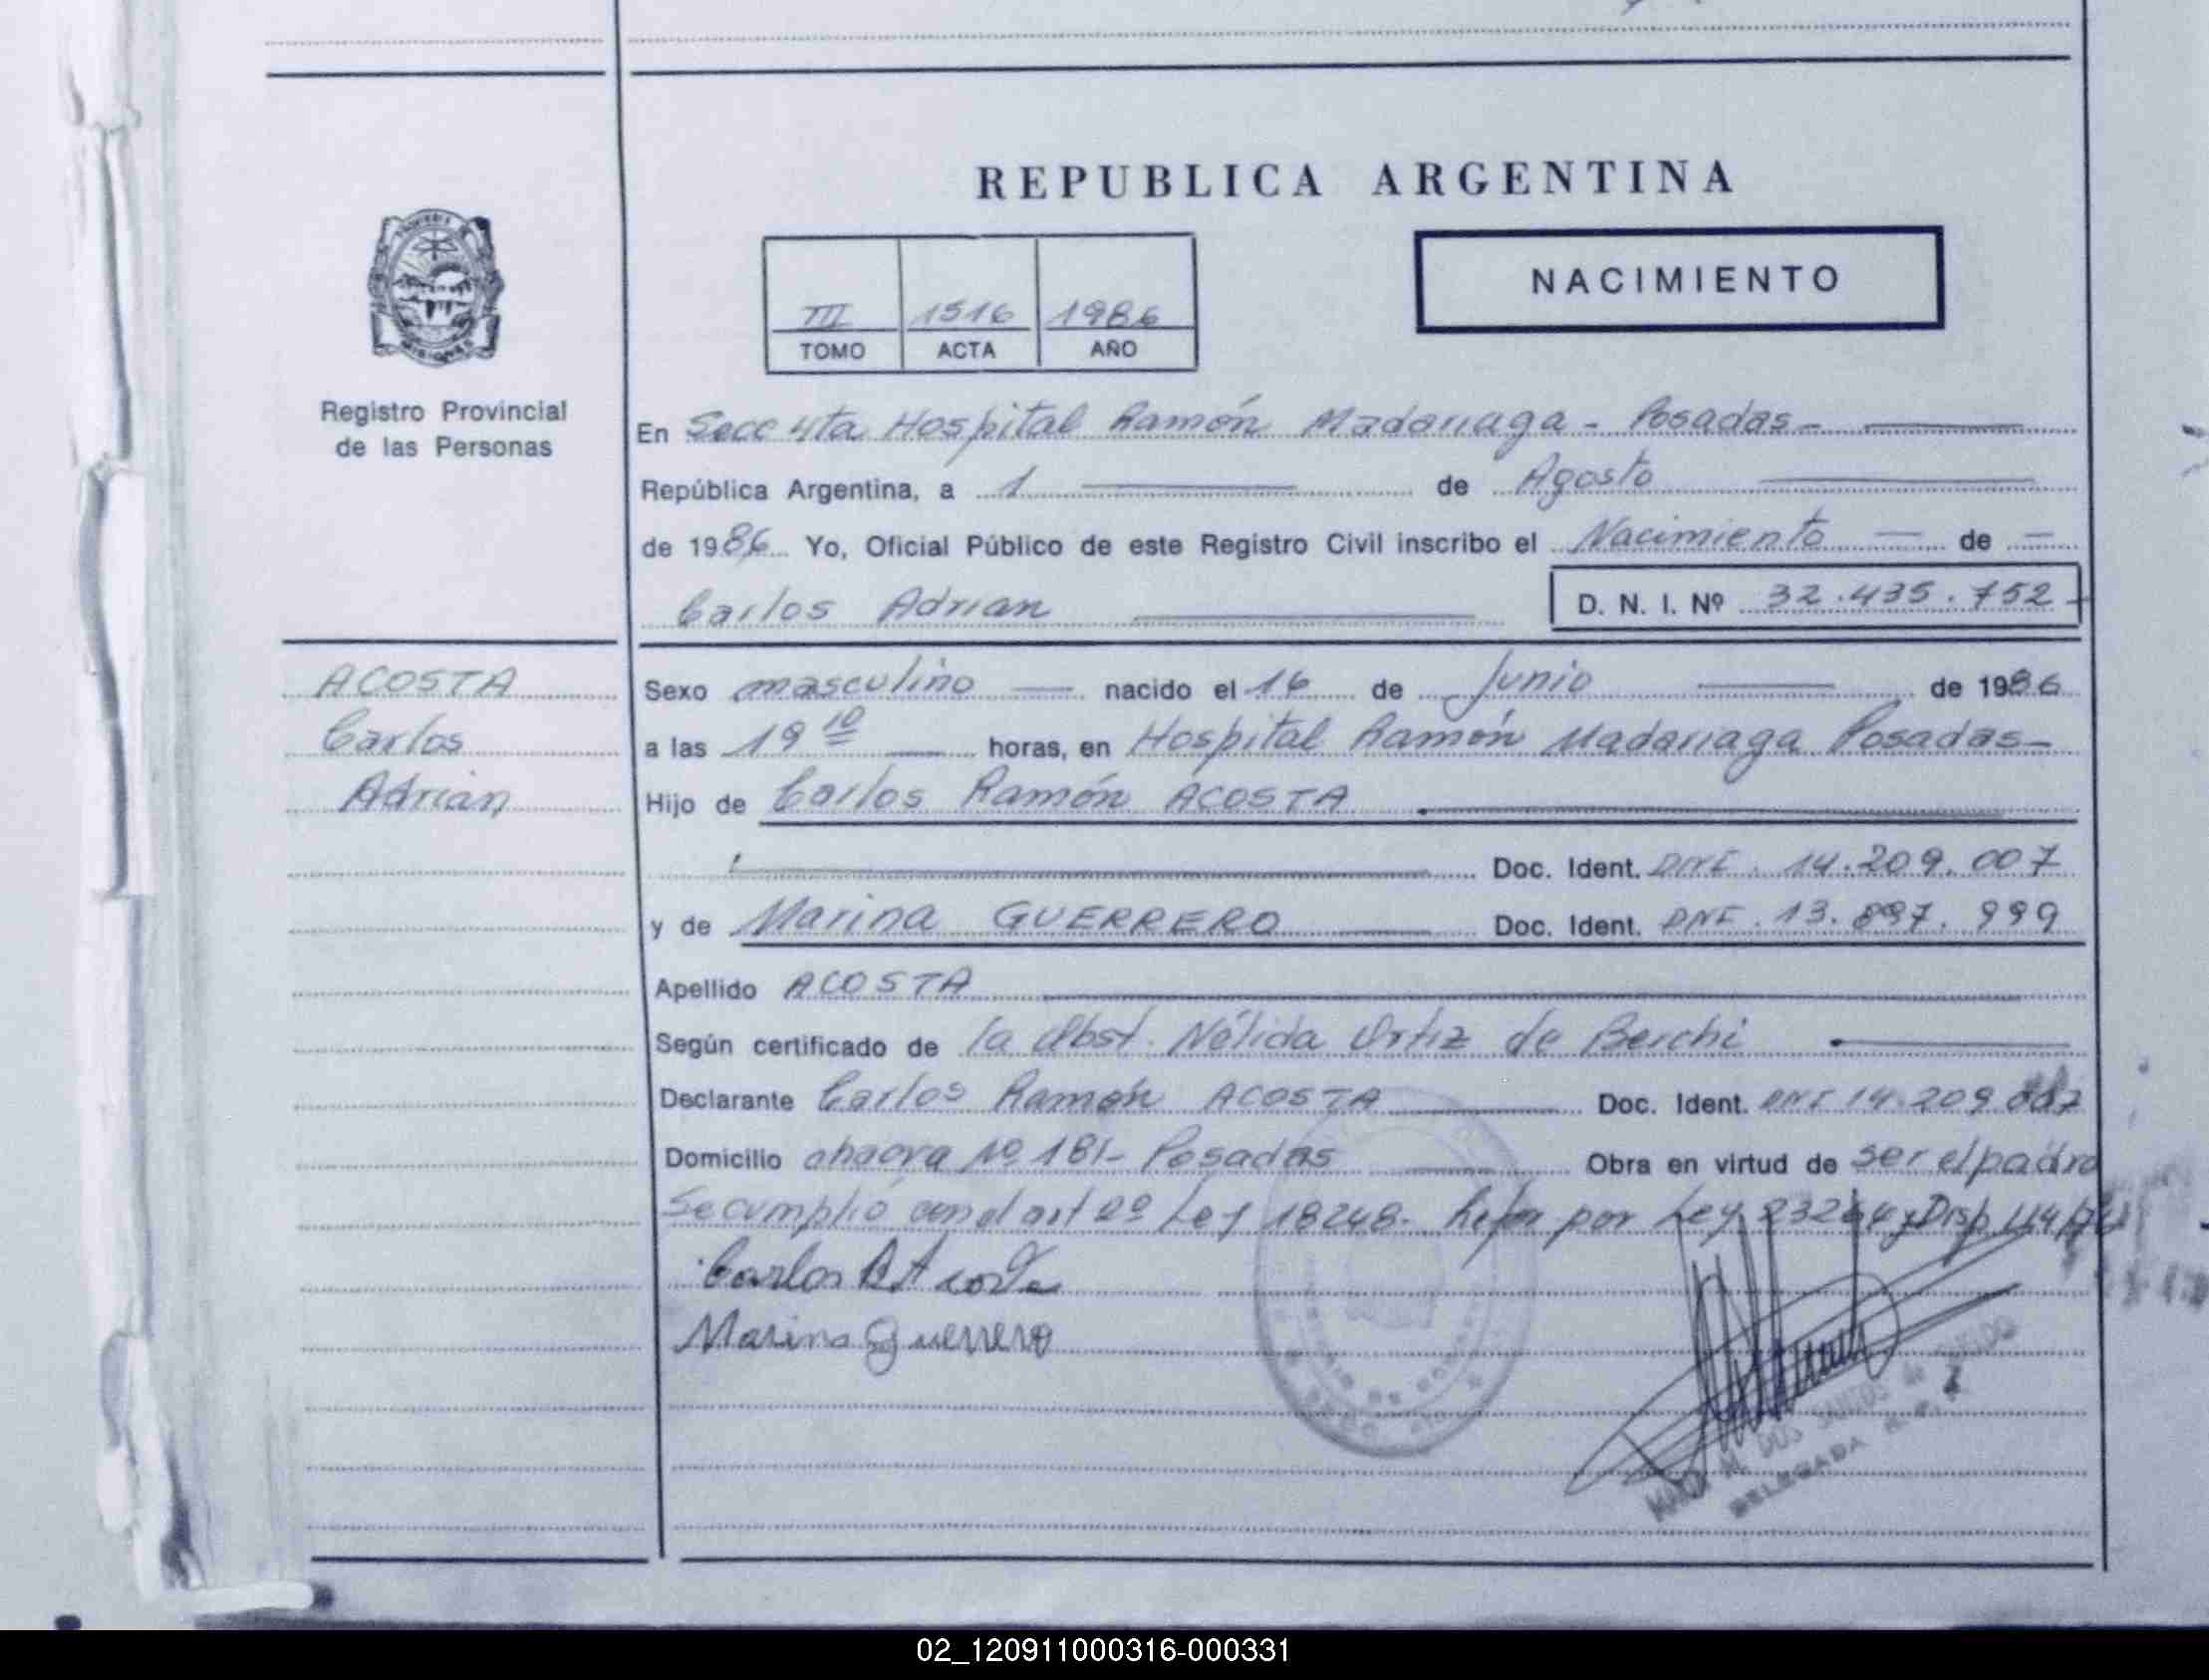 REPUBLICA ARGENTINA
NACIMIENTO
III 1516 1986
TOMO ACTA AÑO
MISIONES
Registro Provincial
de las Personas
En Secc 4ta Hospital Ramón Madariaga - Posadas -
República Argentina, a 1 de Agosto
de 1986 Yo, Oficial Público de este Registro Civil inscribo el Nacimiento de
Carlos Adrian D. N. I. Nº 32.435.752
ACOSTA
Carlos
Adrian
Sexo masculino nacido el 16 de Junio de 1986
a las 19 10 horas, en Hospital Ramón Madariaga Posadas
Hijo de Carlos Ramón ACOSTA
Doc. Ident. DNI. 14.209.007
y de Marina GUERRERO Doc. Ident. DNI. 13.897.999
Apellido ACOSTA
Según certificado de la Obst. Nélida Ortiz de Berchi
Declarante Carlos Ramón ACOSTA Doc. Ident. DNI 14.209
Domicilio chacra Nº 181- Posadas Obra en virtud de ser el padre
Se cumplió con el art 2º Ley 18248. Refor por Ley 23264 y Disp 114/74
Carlos R Acosta
Marina Guerrero
M. DOS SANTOS de
DELEGADA
02_120911000316-000331